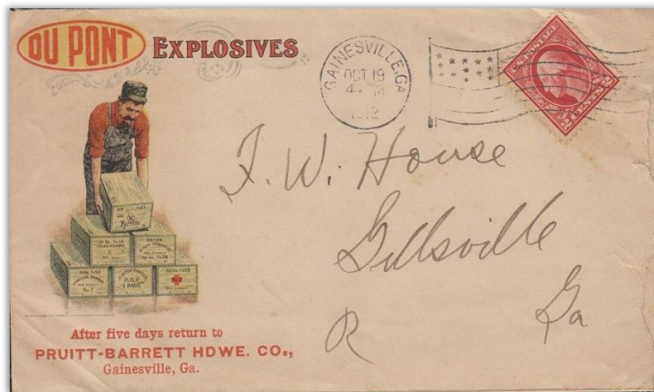 DU PONT EXPLOSIVES
GAINESVILLE, GA.
OCT 19
1912
U.S. POSTAGE
2 CENTS 2
J. W. House
Gillsville
R Ga
After five days return to
PRUITT-BARRETT HDWE. CO.,
Gainesville, Ga.